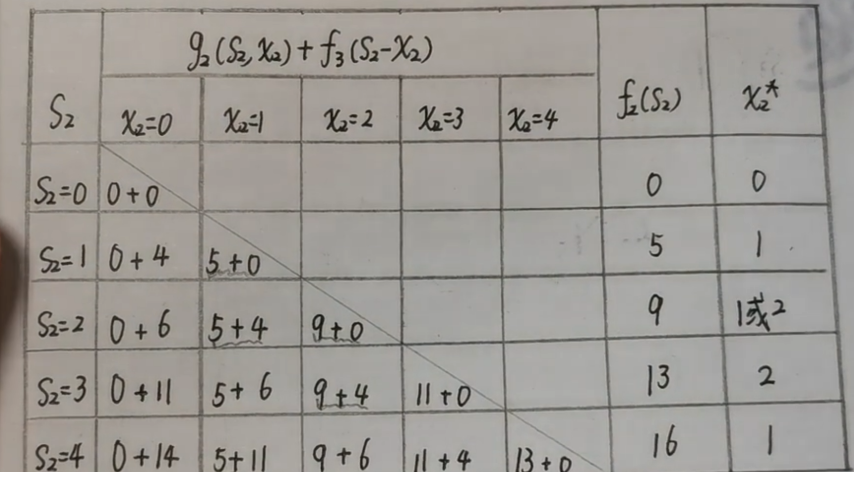 g₂(S₂,X₂)+f₃(S₂-X₂)
S₂ X₂=0 X₂=1 X₂=2 X₂=3 X₂=4 f₂(S₂) X₂*
S₂=0 0+0 0 0
S₂=1 0+4 5+0 5 1
S₂=2 0+6 5+4 9+0 9 1或2
S₂=3 0+11 5+6 9+4 11+0 13 2
S₂=4 0+14 5+11 9+6 11+4 13+0 16 1